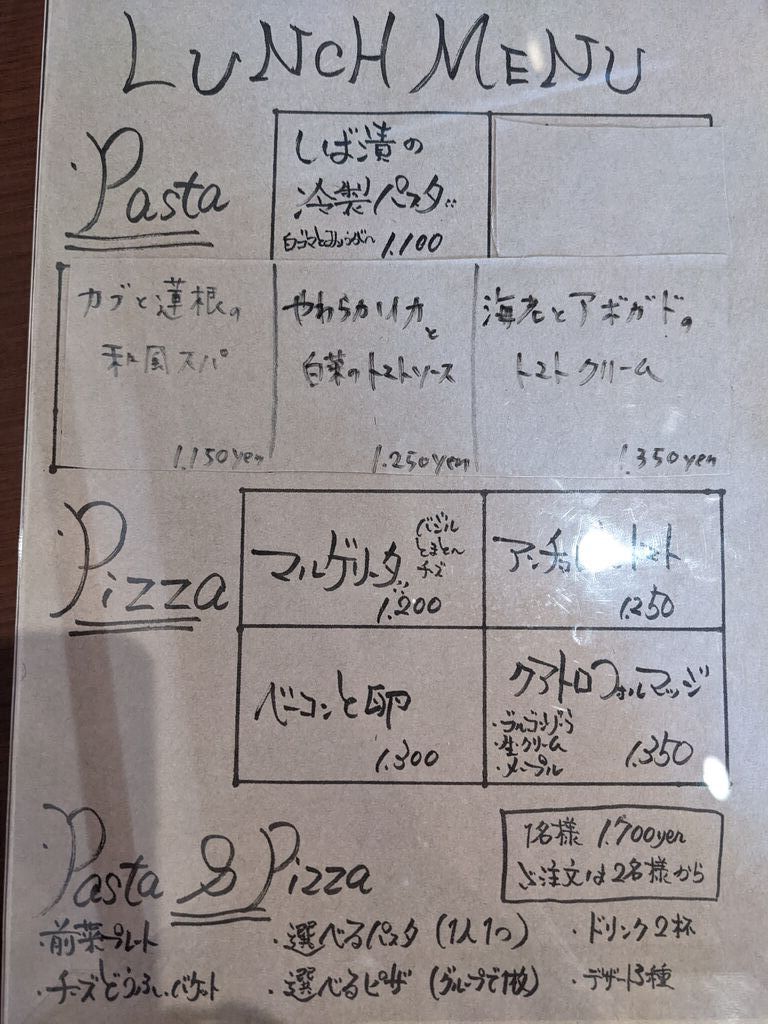 LUNCH MENU
Pasta
しば漬の
冷製パスタ
1.100
カブと蓮根の
和風スパ
1.150yen
やわらかイカと
白菜のトマトソース
1.250yen
海老とアボガドの
トマトクリーム
1.350yen
Pizza
マルゲリータ
バジル
とまとん
チーズ
1.200
アンチョビ トマト
1.250
ベーコンと卵
1.300
クアトロフォルマッジ
・ゴルゴンゾーラ
・生クリーム
・メープル
1.350
Pasta & Pizza
1名様 1.700yen
ご注文は2名様から
・前菜プレート
・選べるパスタ (1人1つ)
・ドリンク2杯
・チーズどうふ、バケット
・選べるピザ (グループで1枚)
・デザート3種